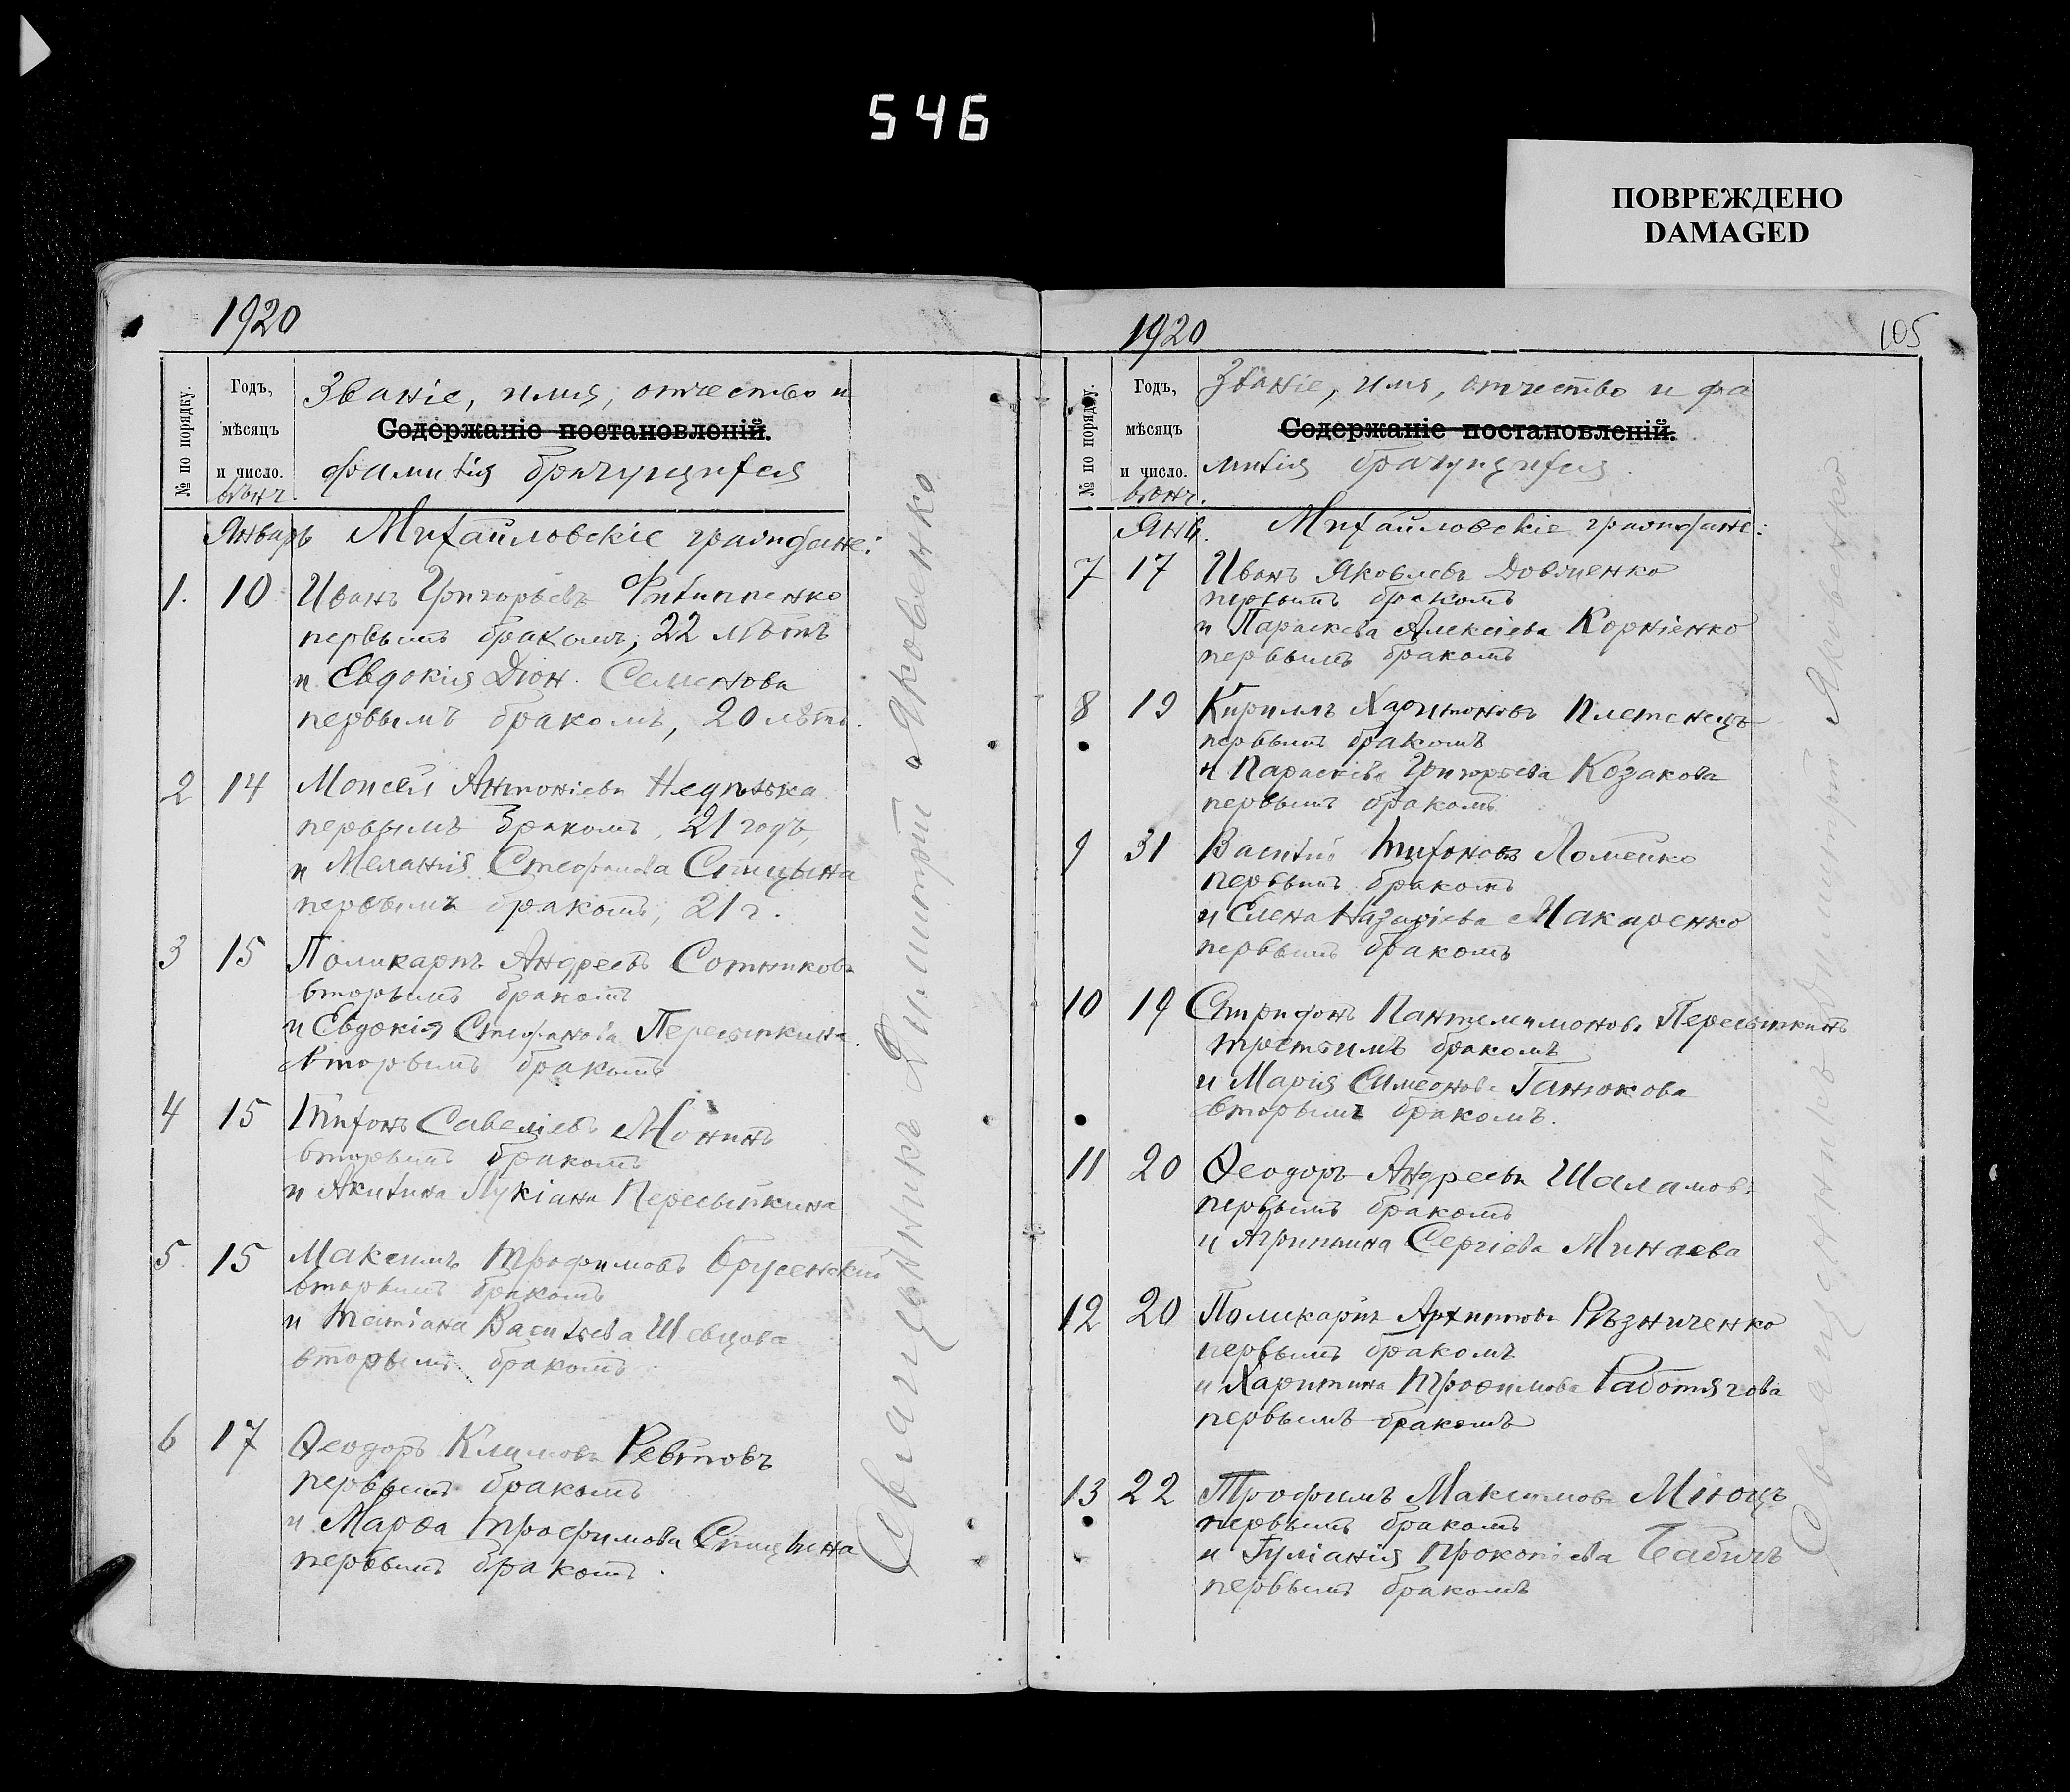 546
ПОВРЕЖДЕНО
DAMAGED
1920
№ по порядку.
Годъ,
мѣсяцъ
и число.
вѣнч.
Званіе, имя, отчество и
Содержаніе постановленій.
фамилія брачущихся
Январь Михайловскіе граждане:
1. 10 Иванъ Григорьевъ Филиппенко
первымъ бракомъ, 22 лѣтъ
и Евдокія Діон. Семенова
первымъ бракомъ, 20 лѣтъ.
2 14 Моисей Антоніевъ
первымъ бракомъ, 21 годъ,
и Меланія Стефанова Спицына
первымъ бракомъ, 21 г.
3 15 Поликарпъ Андреевъ Сотниковъ
вторымъ бракомъ
и Евдокія Стефанова Пересыпкина.
вторымъ бракомъ
4 15 Тихонъ Савеліевъ Монинъ
вторымъ бракомъ
и Акилина Лукіана Пересыпкина
5. 15 Максимъ Трофимовъ Брусенскій
вторымъ бракомъ
и Татіана Васильева Шевцова
вторымъ бракомъ
6 17 Ѳеодоръ Климовъ Ревтовъ
первымъ бракомъ
и Марѳа Трофимова Спицына
первымъ бракомъ.
Священникъ Димитрій Яковенко
1920
105
№ по порядку.
Годъ,
мѣсяцъ
и число.
вѣнч.
Званіе, имя, отчество и фа
Содержаніе постановленій.
милія брачущихся.
Янв. Михайловскіе граждане:
7 17 Иванъ Яковлевъ Довженко
первымъ бракомъ
и Параскева Алексіева Корніенко
первымъ бракомъ
8 19 Кириллъ Харитоновъ Плетенецъ
первымъ бракомъ
и Параскева Григорьева Козакова
первымъ бракомъ
9 31 Василій Тихоновъ Ломейко
первымъ бракомъ
и Елена Назаріева Макаренко
первымъ бракомъ
10 19 Спиридонъ Пантелимоновъ Пересыпкинъ
третьимъ бракомъ
и Марія Симеонова Ганюкова
вторымъ бракомъ.
11 20 Ѳеодоръ Андреевъ Шаламовъ
первымъ бракомъ
и Агрипина Сергіева Минаева
12 20 Поликарпъ Архиповъ Рѣзниченко
первымъ бракомъ
и Харитина Трофимова Работягова
первымъ бракомъ
13 22 Трофимъ Максимовъ Міюцъ
первымъ бракомъ
и Іуліанія Прокопіева Бабичъ
первымъ бракомъ
Священникъ Димитрій Яковенко